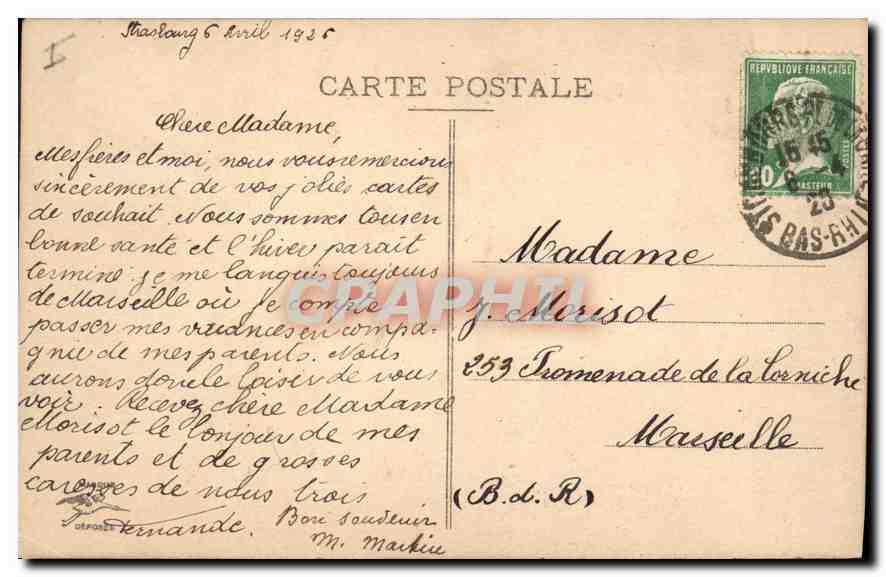 Strasbourg 6 Avril 1926
CARTE POSTALE
Chère Madame,
Mes frères et moi, nous vous remercions
sincèrement de vos jolies cartes
de souhait. Nous sommes tous en
bonne santé et l'hiver parait
terminé. Je me languis toujours
de Marseille où je compte
passer mes vacances en compa-
gnie de mes parents. Nous
aurons donc le loisir de vous
voir. Recevez chère Madame
Morisot le bonjour de mes
parents et de grosses
caresses de nous trois
Fernande.
Bon souvenir
M.
DÉPOSÉE
REPUBLIQUE FRANÇAISE
POSTES
PASTEUR
15 45
6 - 4
BAS-RHIN
Madame
J. Morisot
253 Promenade de la Corniche
Marseille
(B. d. R)
CRAPHIL